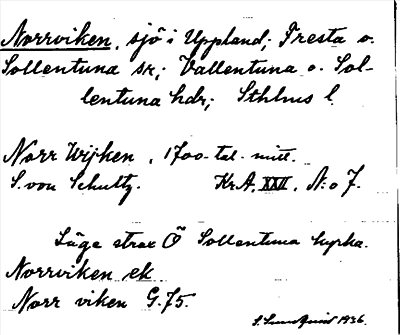 Norrviken, sjö i Uppland; Fresta o.
Sollentuna sn; Vallentuna o. Sol-
lentuna hdr; Sthlms l.
Norr Wijken, 1700-tal. mitt.
S. von Schultz. Kr.A. XXII, N:o 7.
Läge strax Ö Sollentuna kyrka.
Norrviken ek.
Norr viken G. 75.
S. Lundquist 1936.